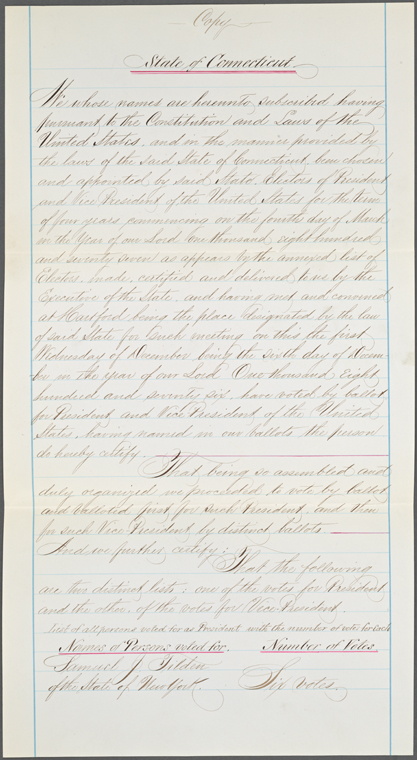 Copy
State of Connecticut.
We whose names are hereunto subscribed having
pursuant to the Constitution and Laws of the
United States, and in the manner provided by
the laws of the said State of Connecticut, been chosen
and appointed by said State, Electors of President
and Vice President of the United States for the term
of four years, commencing on the fourth day of March
in the Year of our Lord One thousand, eight hundred
and seventy seven as appears by the annexed list of
Electors, made, certified and delivered to us by the
Executive of the State, and having met and convened
at Hartford being the place designated by the law
of said State for such meeting on this the first
Wednesday of December being the sixth day of Decem-
ber in the year of our Lord One thousand Eight
hundred and seventy six, have voted by ballot
for President, and Vice President of the United
States, having named in our ballots the person
do hereby certify
That being so assembled and
duly organized we proceeded to vote by ballot
and balloted first for such President, and then
for such Vice President by distinct ballots.
And we further certify:
That the following
are two distinct lists; one of the votes for President
and the other, of the votes for Vice President.
List of all persons voted for as President with the number of votes for each
Names of Persons voted for. Number of Votes.
Samuel J. Tilden
of the State of New York. Six votes